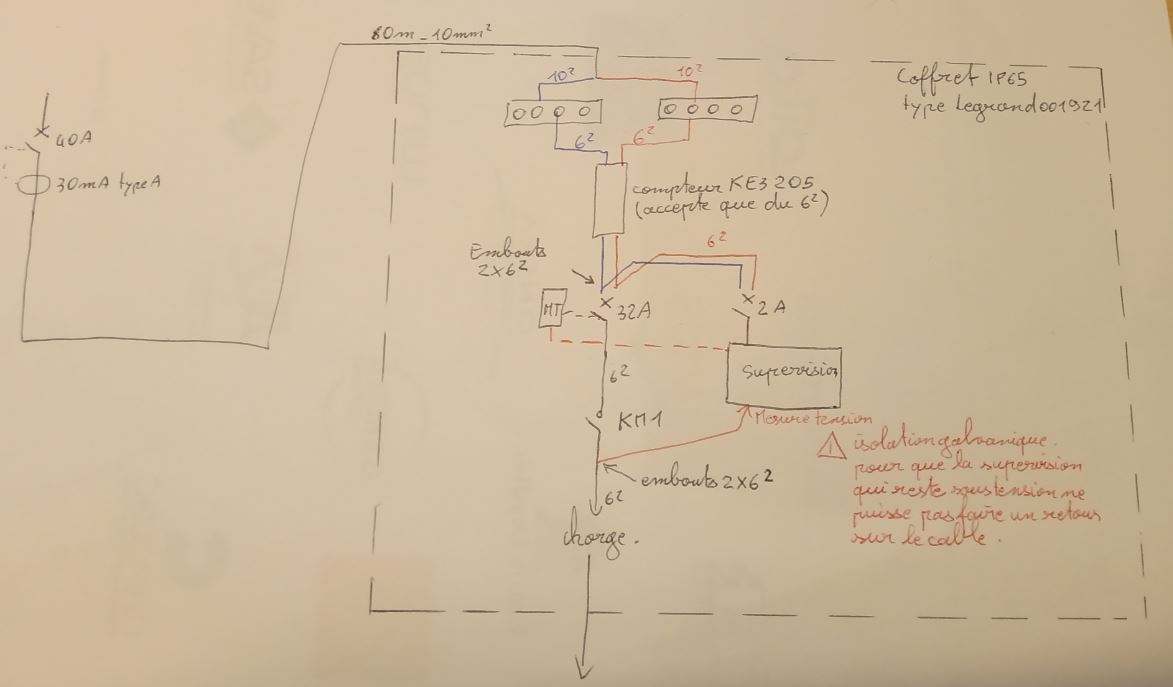 80m_10mm²
10²
10²
Coffret IP65
type legrand001921
40A
30mA typeA
6²
6²
compteur KE3 205
(accepte que du 6²)
Embouts
2x6²
6²
MT
32A
2A
6²
Supervision
KM1
Mesure tension
embouts 2x6²
6²
charge.
! isolation galvanique.
pour que la supervision
qui reste sous tension ne
puisse pas faire un retour
sur le cable.